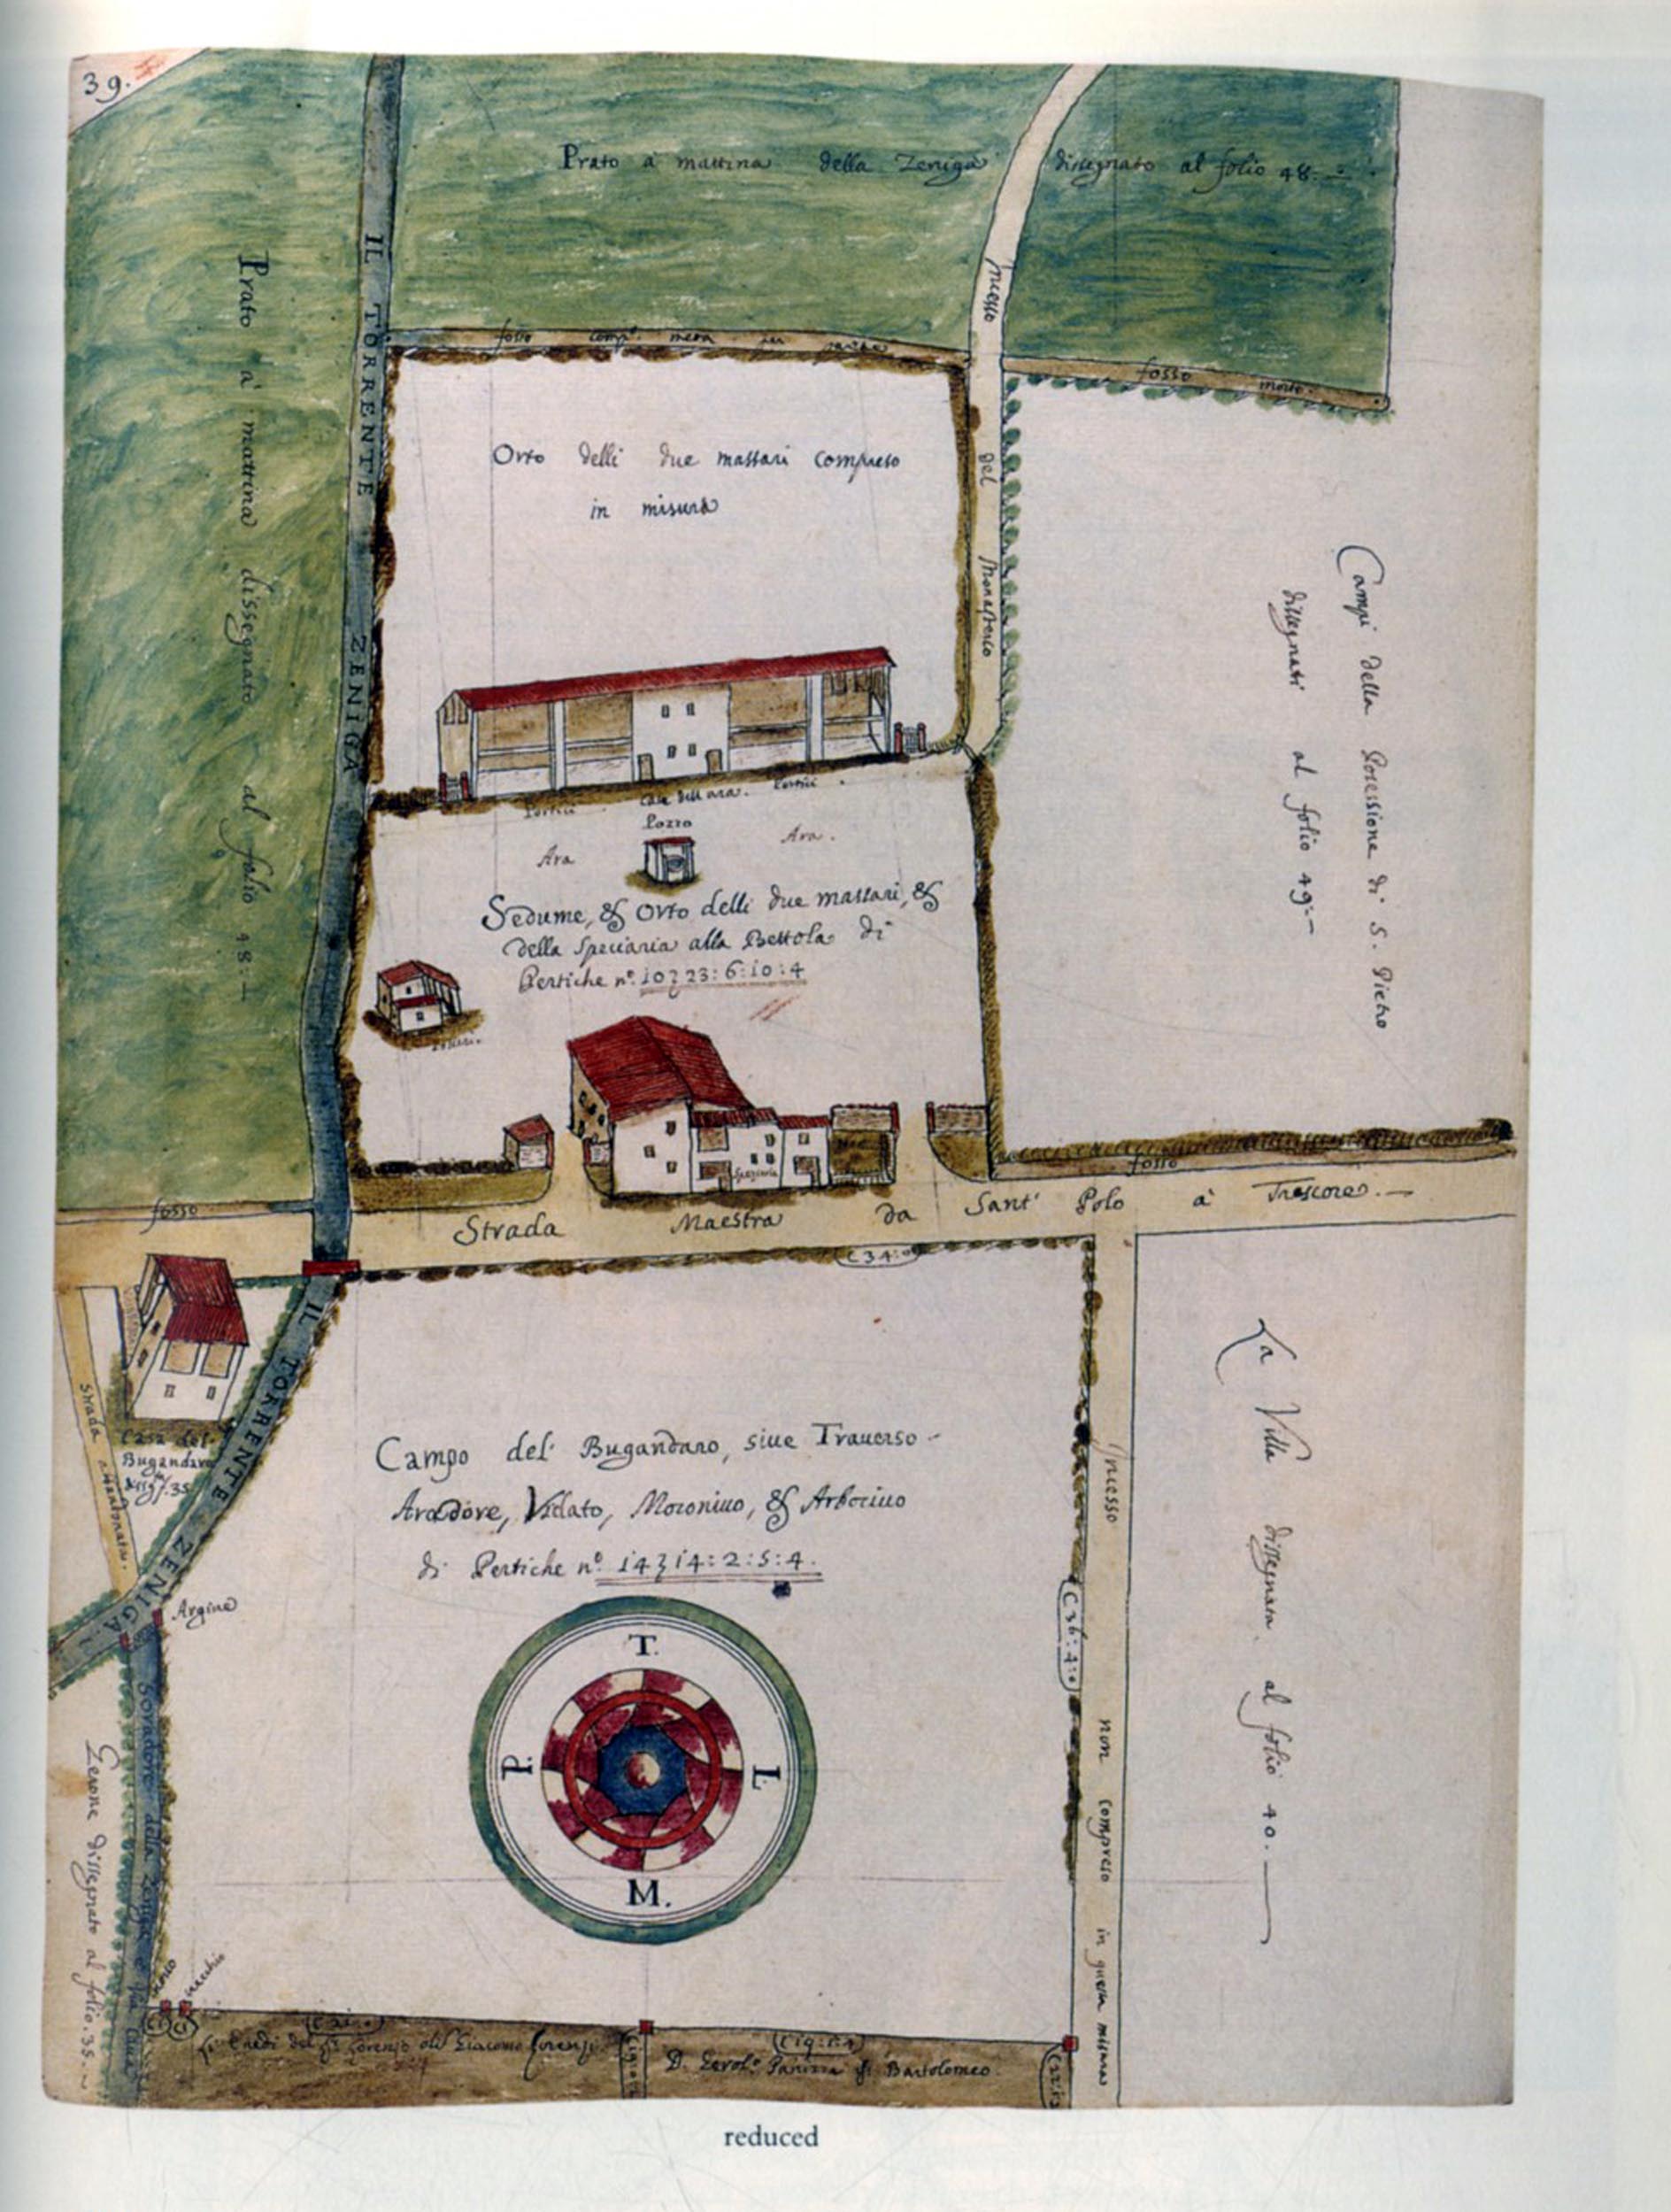 39.
Prato a' mattina della Zeniga dissegnato al folio 48.
Prato a' mattina dissegnato al folio 48.
IL TORRENTE ZENIGA
Incesso del Monasterio
fosso
fosso morto.
Orto delli due massari compreso
in misura
Campi della Possessione di S. Pietro
dissegnati al folio 49.
Portici
Case dell'ara.
Portici
Pozzo
Ara
Ara.
Sedume, & Orto delli due massari, &
della Speciaria alla Bettola di
Pertiche nº. 10 23:6:10:4
Speciaria
fosso
fosso
Strada Maestra da Sant' Polo à Trescore.
C 34:0
IL TORRENTE ZENIGA
Strada
Casa del
Bugandaro
Campo del Bugandaro, siue Trauerso
Aradore, Vidato, Moroniuo, & Arboriuo
di Pertiche nº. 14 14:2:5:4.
La Villa dissegnata al folio 40.
Incesso non compreso in questa misura
C 36:4:0
Argine
T.
P.
L
M.
Sovradore della Zeniga
Gerone dissegnato al folio. 35.
Eredi del
Giacomo
D. Bartolomeo
reduced